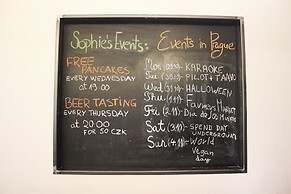 Sophie's Events: Events in Prague
FREE
PANCAKES
EVERY WEDNESDAY
at 19.00
BEER TASTING
EVERY THURSDAY
at 20.00
FOR 50 CZK
Mon KARAOKE
Wed HALLOWEEN
Farmers MARKET
Fri Dia de los Muertos
Sat SPEND DAY
UNDERGROUND
Sun World
Vegan
day